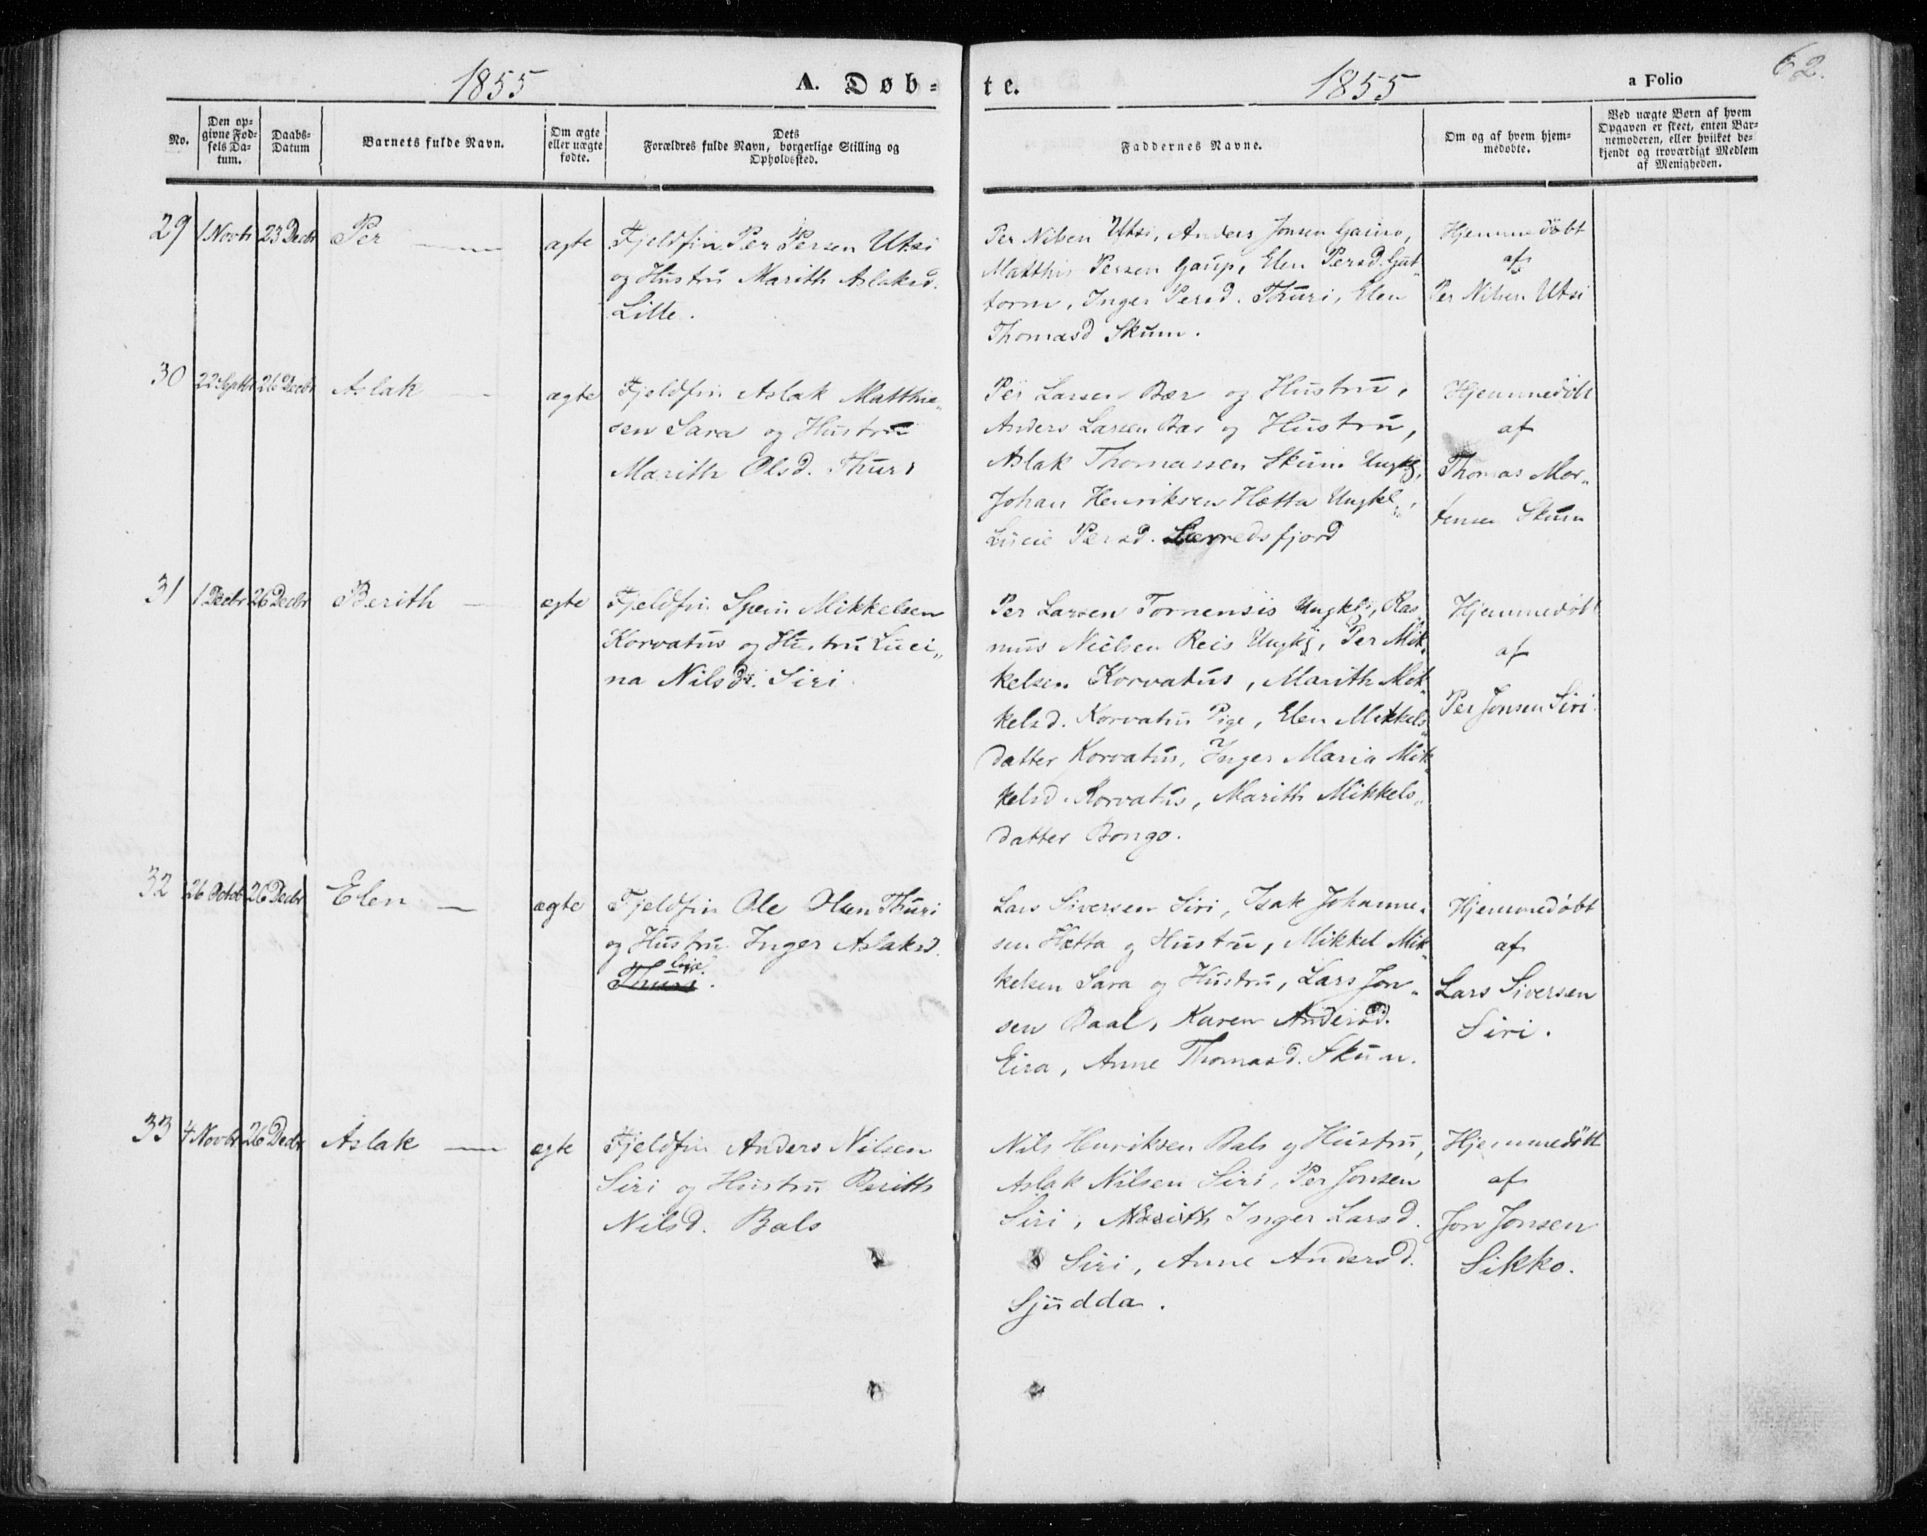 1855
A. Døb-
te.
1855
a Folio
62.
No.
Den op-
givne Fød-
sels Da-
tum.
Daabs-
Datum
Barnets fulde Navn.
Om ægte
eller uægte
fødte.
Dets
Forældres fulde Navn, borgerlige Stilling og
Opholdssted.
Faddernes Navne.
Om og af hvem hjem-
medøbte.
Ved uægte Børn af hvem
Opgaven er skeet, enten Bar-
nemoderen, eller hvilket be-
kjendt og troværdigt Medlem
af Menigheden.
29 1 Novbr 23 Decbr Per ægte
Fjeldfin Per Persen Utsi
og Hustru Marith Aslaksd.
Lille.
Per Nilsen Utsi, Anders Jonsen Gaino,
Matthis Persen Gaup, Elen Persd. Gut-
torm, Inger Persd. Thuri, Elen
Thomasd Skum.
Hjemmedöbt
af
Per Nilsen Utsi
30 22 Septbr 26 Decbr Aslak ægte
Fjeldfin Aslak Matthie-
sen Sara og Hustru
Marith Olsd. Thuri
Per Larsen Bær og Hustru,
Anders Larsen Bær og Hustru,
Aslak Thomassen Skum Ungk,
Johan Henriksen Hætta Ungkl,
Lucie Persd. Laxredsfjord
Hjemmedöbt
af
Thomas Mor-
tensen Skum
31 1 Decbr 26 Decbr Berith ægte
Fjeldfin Spein Mikkelsen
Korvatus og Hustru Luci-
na Nilsdr. Siri
Per Larsen Tornensis Ungk, Ras
mus Nielsen Reis Ungk, Per Mik-
kelsen Korvatus, Marith Mik-
kelsd. Korvatus Pige, Elen Mikkels-
datter Korvatus, Inger Maria Mik-
kelsd. Korvatus, Marith Mikkels-
datter Bongo.
Hjemmedöbt
af
Per Jonsen Siri
32 26 Octob 26 Decbr Elen ægte
Fjeldfin Ole Olsen Thuri
og Hustru Inger Aslaksd.
Thuri
Lars Siversen Siri, Isak Johanne-
sen Hætta og Hustru, Mikkel Mik-
kelsen Sara og Hustru, Lars Jon-
sen Baal, Karen Andersd.
Eira, Anne Thomasd. Skum.
Hjemmedöbt
af
Lars Siversen
Siri.
33 4 Novbr 26 Decbr Aslak ægte
Fjeldfin Anders Nilsen
Siri og Hustru Berith
Nilsd. Bals
Nils Henriksen Bals og Hustru,
Aslak Nilsen Siri, Per Jonsen
Siri, Marith Inger Larsd.
Siri, Anne Andersd.
Sjudda.
Hjemmedöbt
af
Jon Jonsen
Sikko.